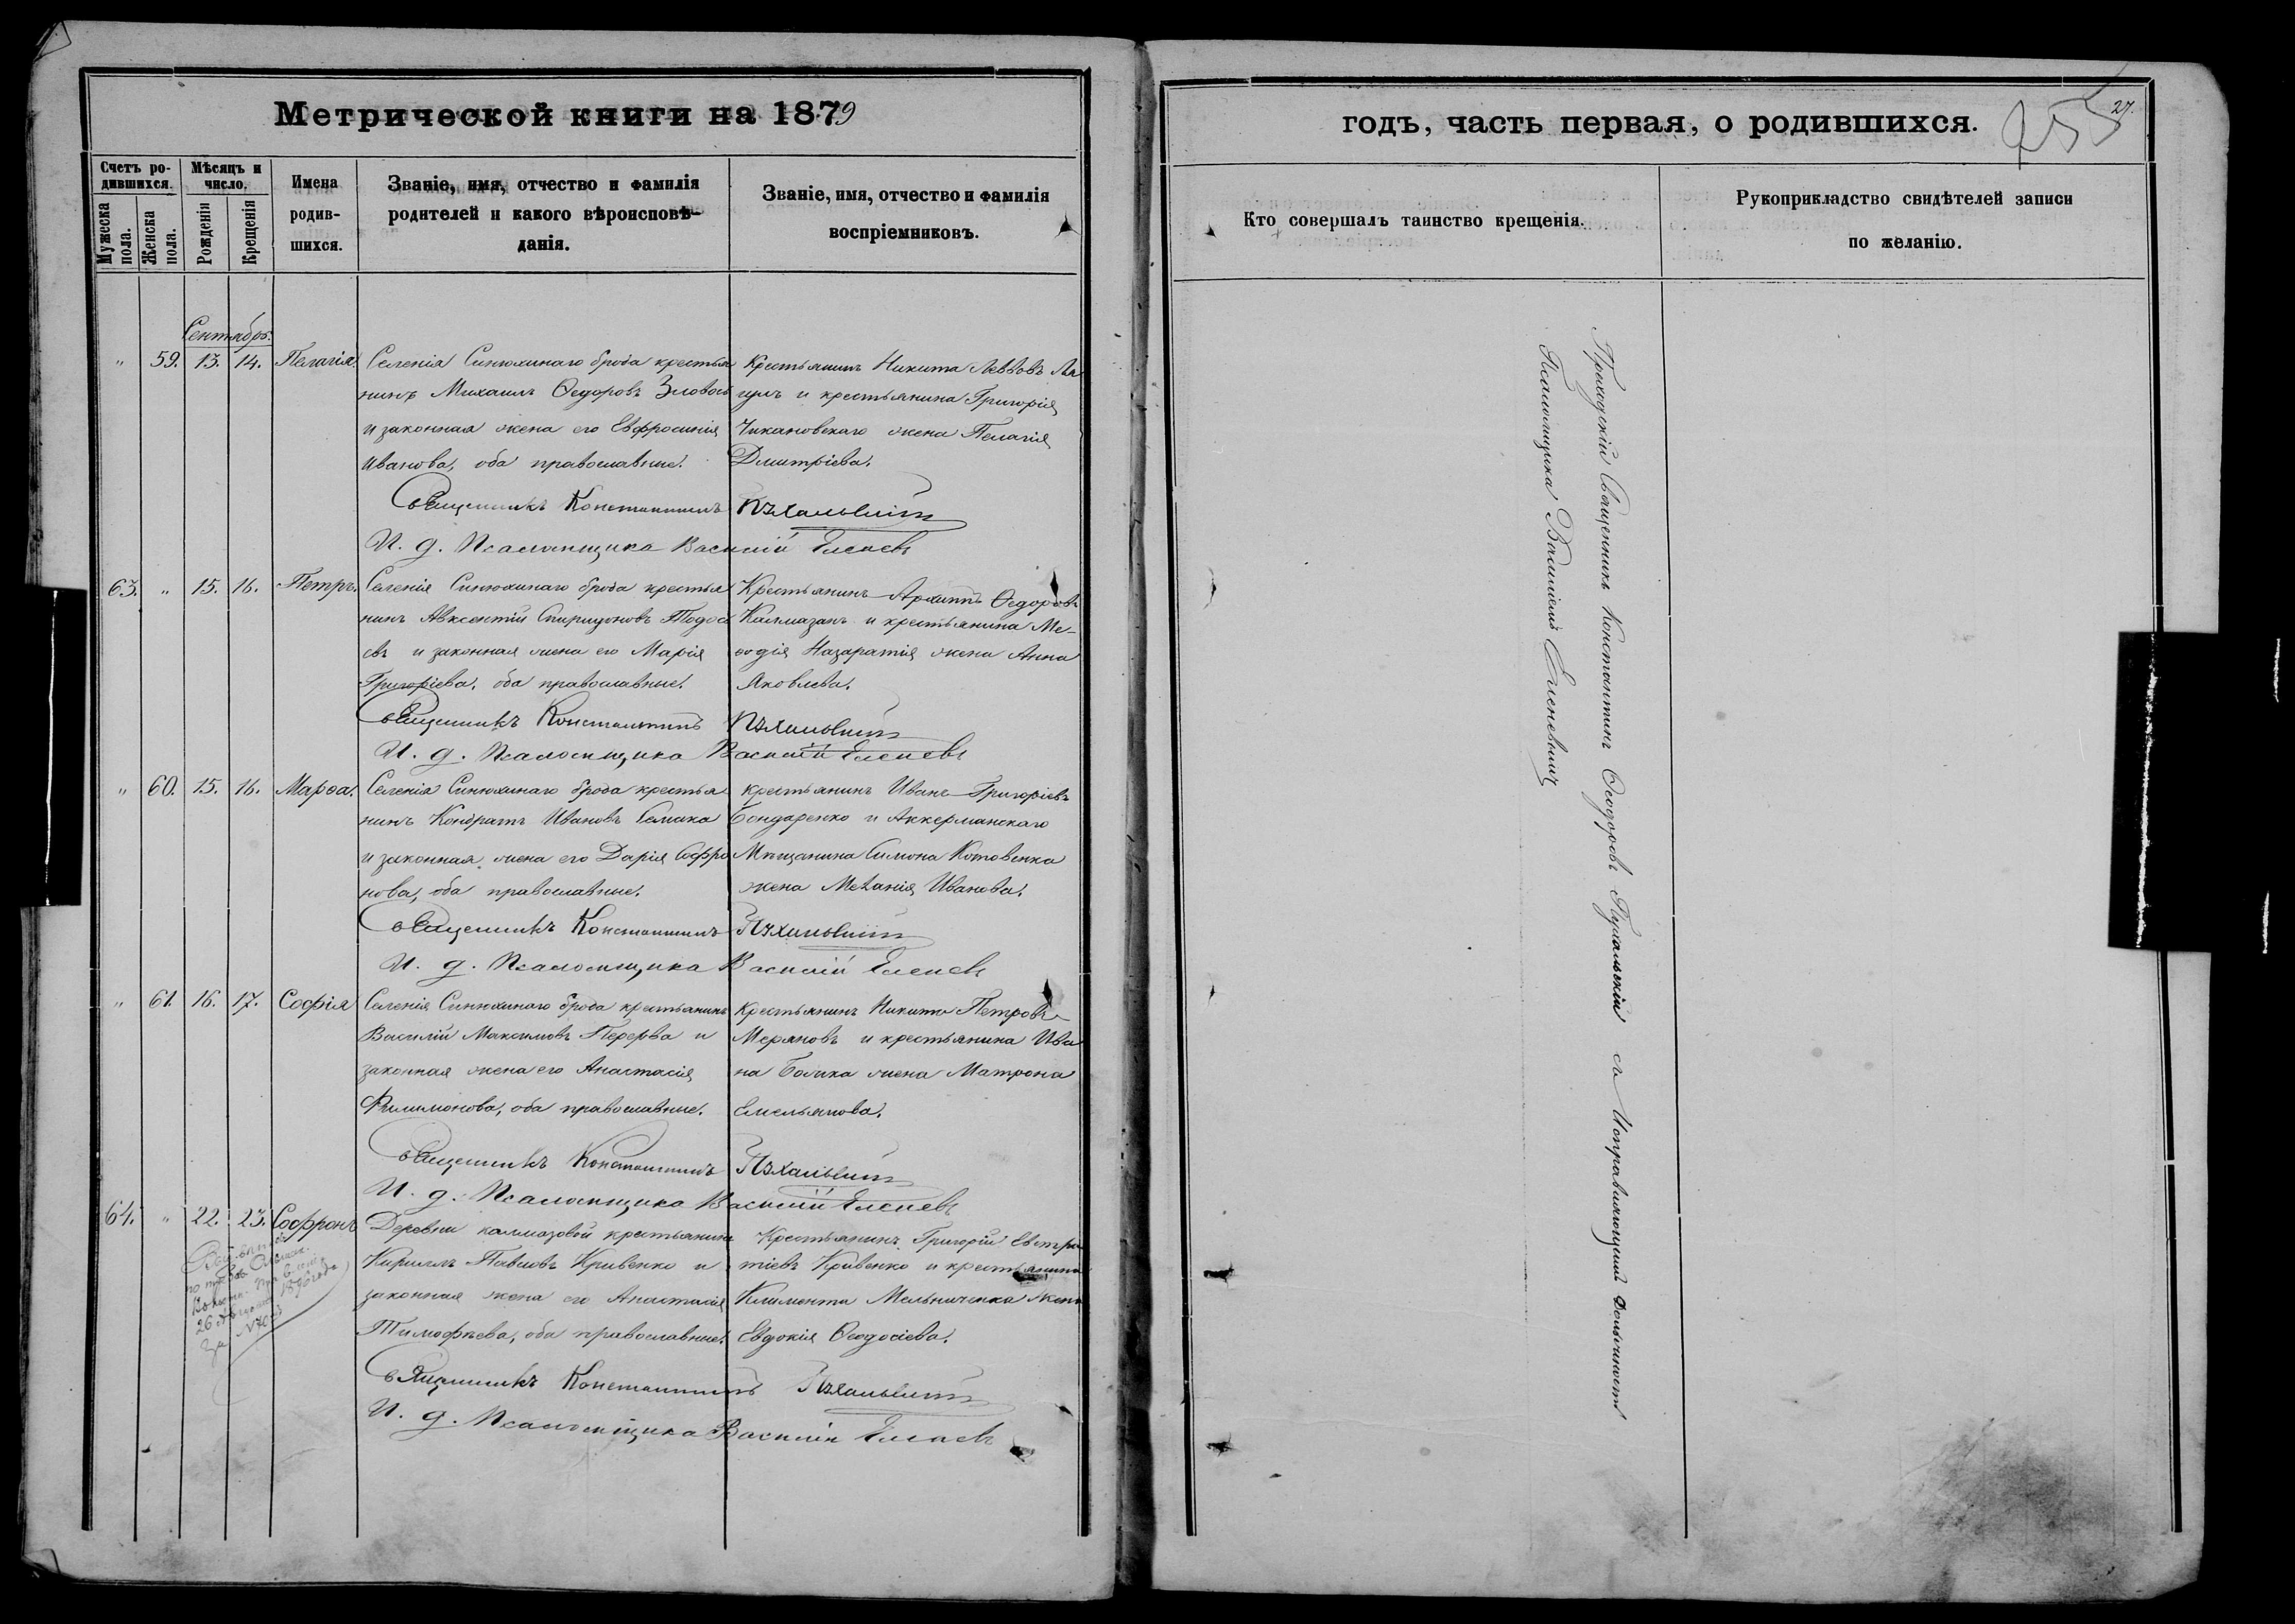 Метрической книги на 1879
Счетъ ро-
дившихся.
Мужеска
пола.
Женска
пола.
Мѣсяцъ и
число.
Рожденія
Крещенія
Имена
родив-
шихся.
Званіе, имя, отчество и фамилія
родителей и какого вѣроисповѣ-
данія.
Званіе, имя, отчество и фамилія
воспріемниковъ.
Сентябрь.
" 59. 13. 14. Пелагія.
Селенія Синюхинаго брода крестья
нинъ Михаилъ Ѳедоровъ
и законная жена его Евфросинія
Иванова, оба православные.
Крестьянинъ Никита Леввовъ
и крестьянина Григорія
Чикановскаго жена Пелагія
Дмитріева.
Священникъ Константинъ
И. д. Псаломщика Василій
63. " 15. 16. Петръ.
Селенія Синюхинаго брода крестья
нинъ Авксентій Спиридоновъ Тодос
евъ и законная жена его Марія
Григорієва, оба православные.
Крестьянинъ Архиппъ Ѳедоровъ
Калмазанъ и крестьянина Ме-
ѳодія Назаратія жена Анна
Яковлева.
Священникъ Константинъ
И. д. Псаломщика Василій
" 60. 15. 16. Марѳа.
Селенія Синюхинаго брода крестья
нинъ Кондратъ Ивановъ Семака
и законная жена его Дарія Софро
нова, оба православные.
крестьянинъ Иванъ Григоріевъ
Бондаренко и Аккерманскаго
Мѣщанина Симона Котовенка
жена Меланія Иванова.
Священникъ Константинъ
И. д. Псаломщика Василій
" 61. 16. 17. Софія
Селенія Синюхинаго брода крестьянинъ
Василій Максимовъ Перерва и
законная жена его Анастасія
Филимонова, оба православные.
Крестьянинъ Никита Петровъ
Меряновъ и крестьянина Ива
на жена Матрона
Емельянова.
Священникъ Константинъ
И. д. Псаломщика Василій
64. " 22. 23. Софронъ
Деревни калмазовой крестьянинъ
Кириллъ Павловъ Кривенко и
законная жена его Анастасія
Тимофѣева, оба православные.
Крестьянинъ Григорій Евстра
тіевъ Кривенко и крестьянина
Климента Мельниченка жена
Евдокія Ѳеодосіева.
26 1896 года
Священникъ Константинъ
И. д. Псаломщика Василій
годъ, часть первая, о родившихся.
27.
255
Кто совершалъ таинство крещенія.
Рукоприкладство свидѣтелей записи
по желанію.
Приходскій Священникъ Константинъ Ѳеодоровъ съ Исправляющимъ должность
Псаломщика Василіемъ